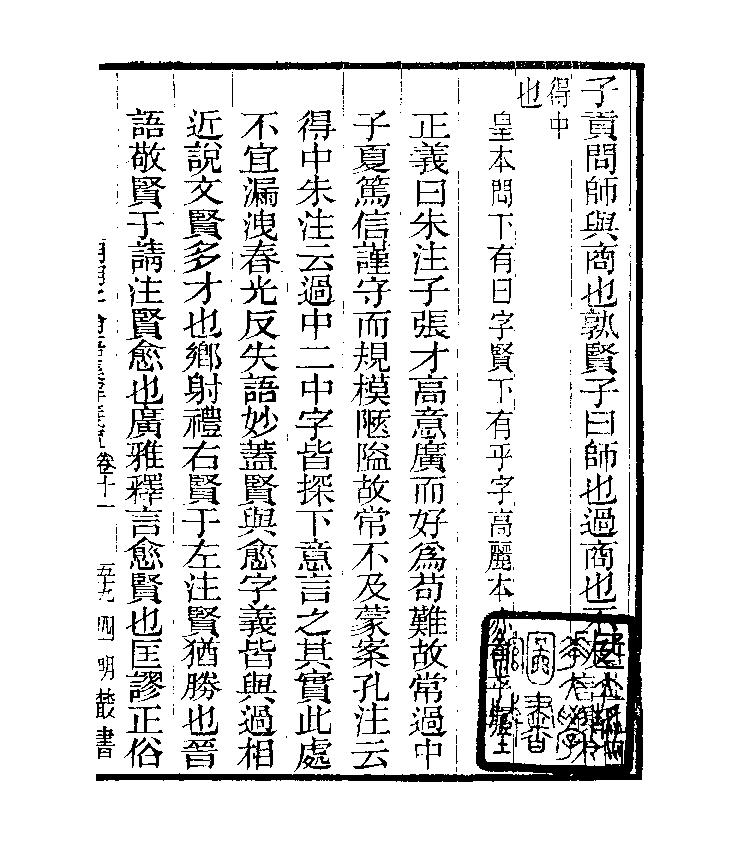 子貢問師與商也孰賢子曰師也過商也不
得中
也
皇本問下有曰字賢下有乎字高麗本亦
正義曰朱注子張才高意廣而好爲苟難故常過中
子夏篤信謹守而規模陿隘故常不及蒙案孔注云
得中朱注云過中二中字皆探下意言之其實此處
不宜漏洩春光反失語妙蓋賢與愈字義皆與過相
近說文賢多才也鄉射禮右賢于左注賢猶勝也晉
語敬賢于請注賢愈也廣雅釋言愈賢也匡謬正俗
卷十一
四明叢書